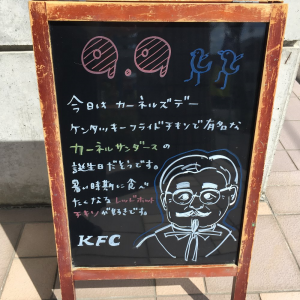 今日は カーネルズデー
ケンタッキーフライドチキンで有名な
カーネルサンダースの
誕生日だそうです。
暑い時期に食べ
たくなる レッドホット
チキンが好きです。
KFC